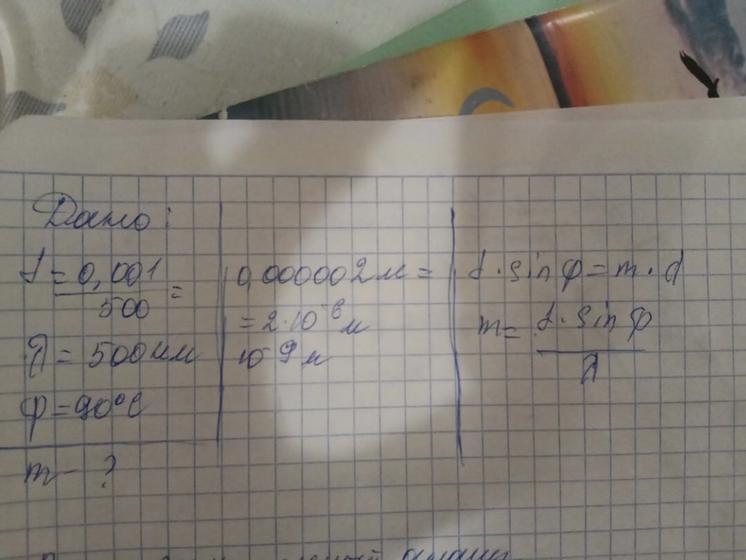 Дано:
d = 0,001 / 500 =
λ = 500 нм
φ = 90°С
m - ?
0,000002 м =
= 2·10⁻⁶ м
10⁻⁹ м
d · sin φ = m · λ
m = d · sin φ / λ